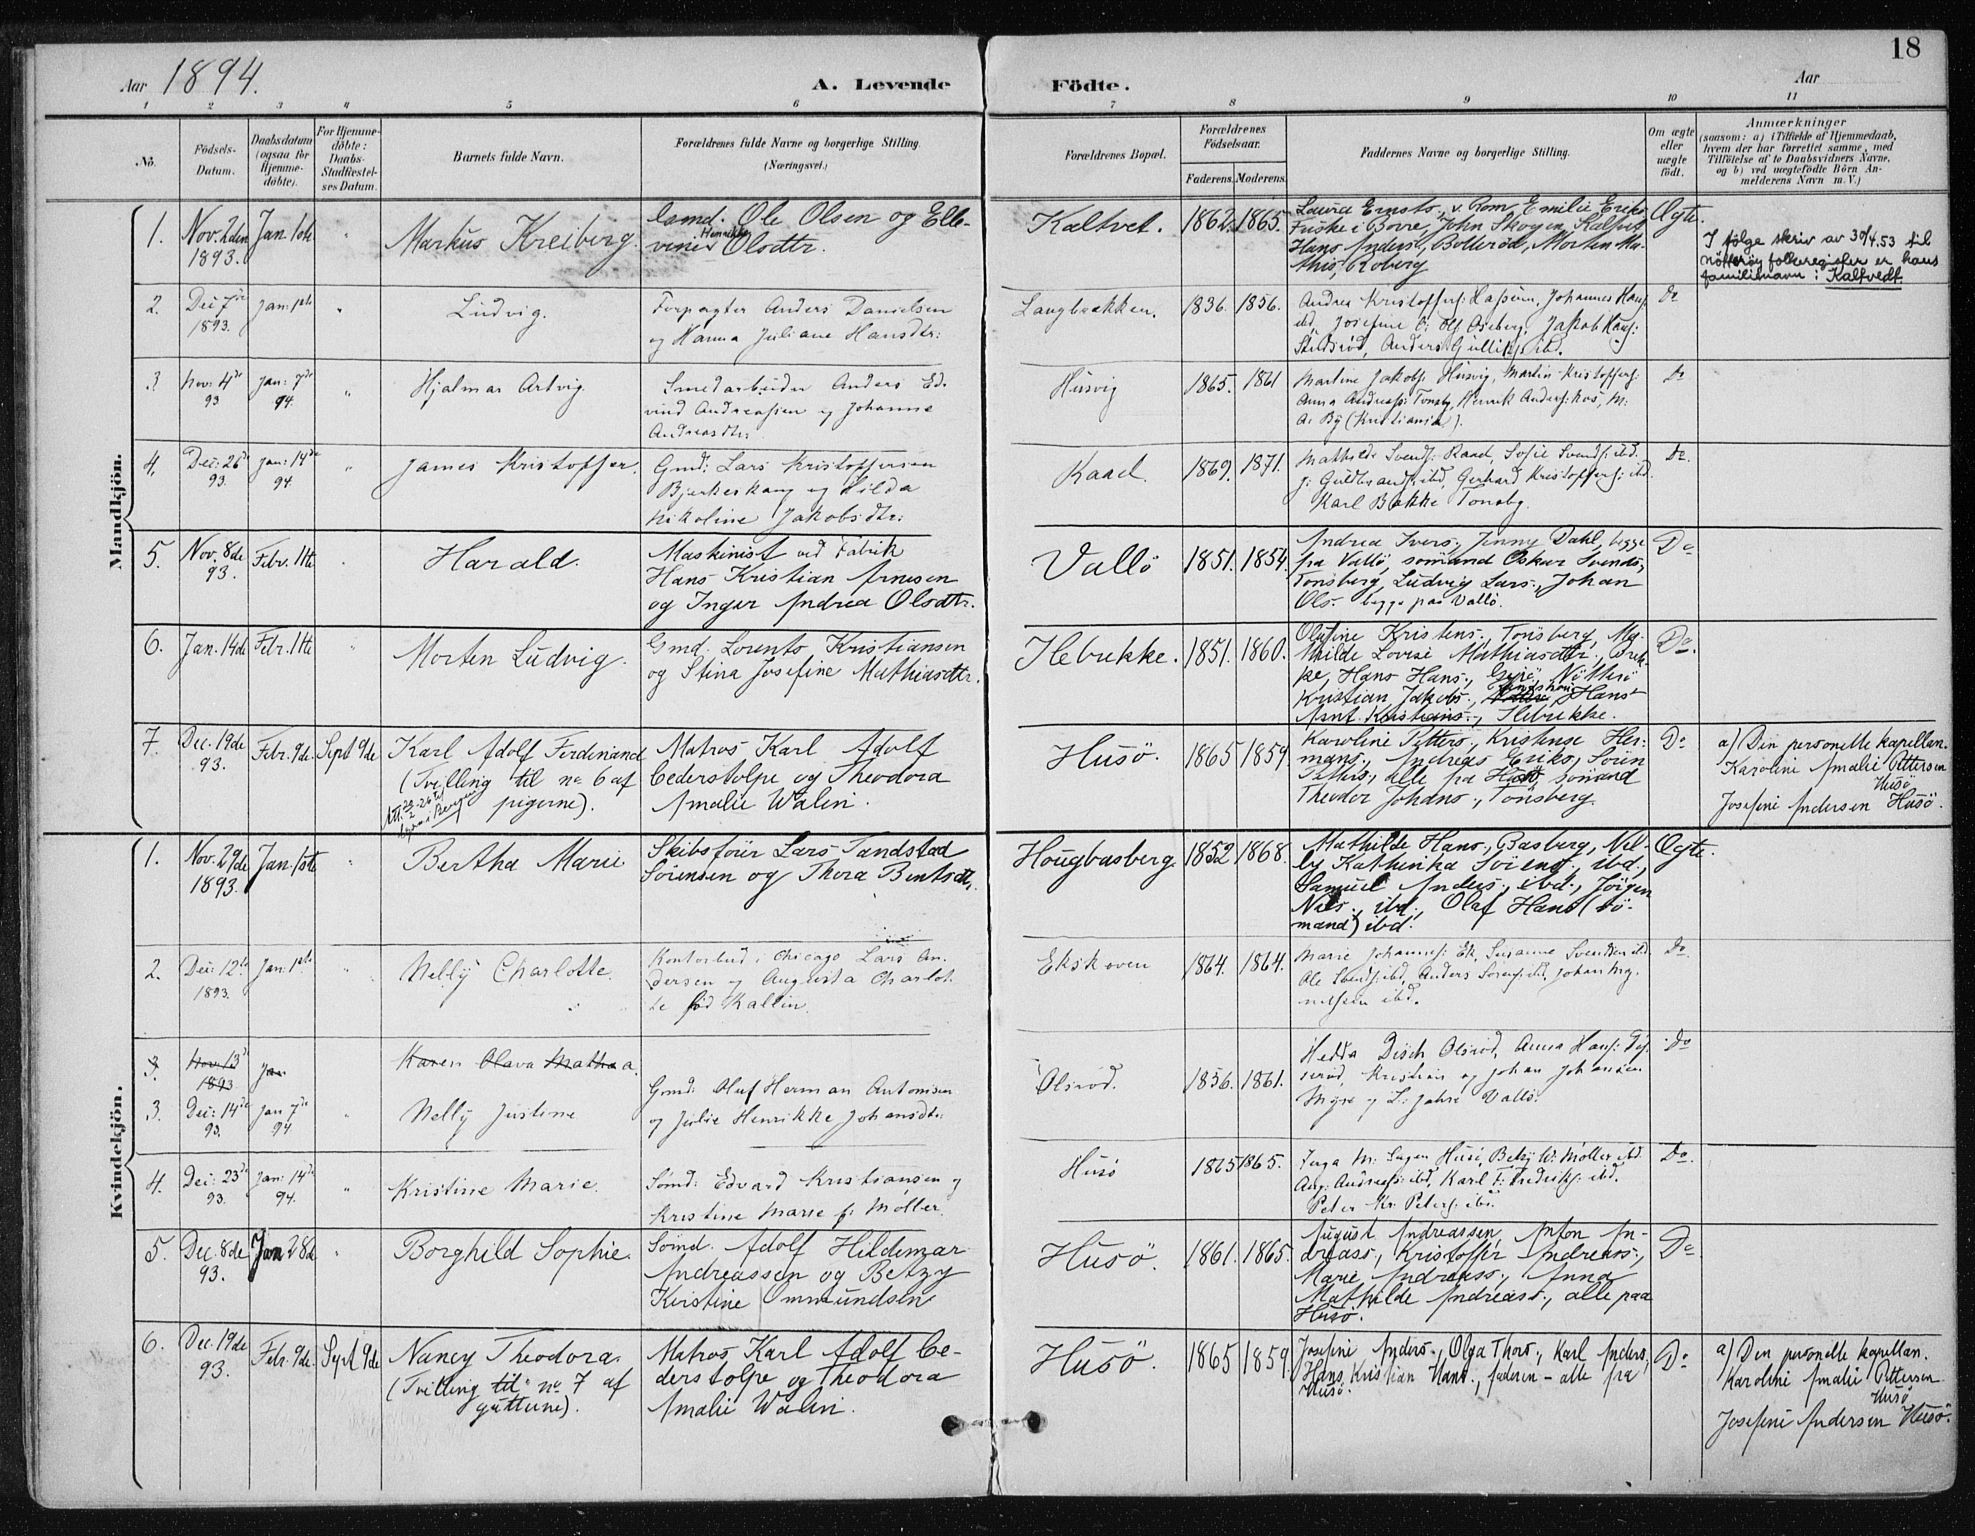 18
Aar 1894.
A. Levende Födte.
Aar
1 2 3 4 5 6 7 8 9 10 11
No.
Födsels-
Datum.
Daabsdatum
(ogsaa for
Hjemme-
döbte).
For Hjemme-
döbte:
Daabs-
Stadfæstel-
ses Datum.
Barnets fulde Navn.
Forældrenes fulde Navne og borgerlige Stilling.
(Næringsvei.)
Forældrenes Bopæl.
Forældrenes
Födselsaar.
Faderens. Moderens.
Faddernes Navne og borgerlige Stilling.
Om ægte
eller
uægte
födt.
Anmærkninger
(saasom: a) i Tilfælde af Hjemmedaab,
hvem der har forrettet samme, med
Tilföielse af to Daabsvidners Navne,
og b) ved uægtefödte Börn An-
melderens Navn m. V.)
Mandkjön.
1. Nov. 2den
1893.
Jan. 1ste
"
Markus Kreiberg.
Gmd. Ole Olsen og Elle-
vine Henrikke Olsdtr.
Kaltvet.
1862. 1865.
Laura Ernsts., v. Rom, Emilie Eriks.
Fuske i Borre, John Skogen, Kaltvet
Hans Anders., Bollerød, Morten Ma-
this., Roberg
Ægte.
I følge skriv av 30/4.53 til
Nøtterøy folkeregister er hans
familienavn: Kaltvedt.
2. Dec. 7de
1893.
Jan: 1ste
"
Ludvig.
Forpagter Anders Danielsen
og Hanna Juliane Hansdtr:
Langbrekken.
1836. 1856.
Andrea Kristoffers: Hassum, Johannes Hans:
ibd, Josefine Olss: Oseberg, Jakob Hans:
Anders Gulliks: ibd.
Do
3 Nov: 4de
93
Jan: 7de
94.
"
Hjalmar Artvig.
Smedarbeider Anders Ed-
vind Andreassen og Johanne
Andreasdtr.
Husvig
1865. 1861
Martine Jakobs: Husvig, Martin Kristoffers:
Anna Andreass: Tonsbg, Henrik Anders: Kos, M:
A: By (Kristiania).
Do
4. Dec: 26de
93.
Jan: 14de
94.
"
James Kristoffer.
Gmd: Lars Kristoffersen
Bjerkeskaug og Hilda
Nikoline Jakobsdtr:
Raael
1869. 1871.
Mathilde Svends: Raael, Sofie Svends: ibd.
J: Guldbrands: ibd, Gerhard Kristoffers: ibd.
Karl Bakke Tonsbg.
Do.
5. Nov. 8de
93.
Febr. 11te
Harald.
Maskinist ved Fabrik
Hans Kristian Arnesen
og Inger Andrea Olsdtr.
Vallö
1851. 1854.
Andrea Ivers., Jenny Dahl, begge
fra Vallö, sömand Oskar Svends,
Tönsberg, Ludvig Lars., Johan
Ols. begge paa Vallö.
Do
6. Jan. 14de
Febr. 11te
"
Morten Ludvig.
Gmd. Lorents Kristiansen
og Stina Josefine Mathiasdtr.
Ilebrekke.
1851. 1860.
Olufine Kristens., Tönsberg, Ma-
thilde Lovise Mathiasdtr., Brek-
ke, Hans Hans., Gipö, Nötterö
Kristian Jakobs., Hans
Arnt. Kristians., Ilebrekke.
Do.
7. Dec. 19de
93.
Febr. 9de.
Sept 9de
Karl Adolf Ferdinand
(Tvilling til no 6 af
pigerne).
Matros Karl Adolf
Cederstolpe og Theodora
Amalie Walin.
Husö.
1865 1859
Karoline Petters., Kristense Her-
mans., Andreas Eriks., Sören
Pethrs., alle fra Husö, sömand
Theodor Johans., Tönsberg.
Do
a) Den personelle kapellan.
Karoline Amalie Pettersen
Husö
Josefine Andersen Husö.
Kvindekjön.
1. Nov. 29de
1893.
Jan. 1ste
"
Bertha Marie
Skibsförer Lars Tandstad
Sörensen og Thora Berntsdtr.
Hougbasberg
1852 1868.
Mathilde Hans., Basberg, Nil-
ly Kathinka Sörens., ibd.,
Samuel Anders., ibd., Jörgen
Nils., ibd., Olaf Hans (sö-
mand) ibd.
Ægte.
2. Dec: 12te
1893.
Jan: 1ste
"
Nelly Charlotte.
Kontorbud i Chicago Lars An-
dersen og Augusta Charlot-
te fød Kallin.
Ekskoven
1864. 1864.
Marie Johannes: Ek, Susanne Svendsen ibd
Ole Svends: ibd, Anders Sørens: ibd, Johan Mag-
nussen ibd.
Do
3. Nov: 13de
1893
Jan
Karen Olava Mathea.
3. Dec: 14de
93.
Jan 7de
94
"
Nelly Justine
Gmd: Oluf Herman Antonisen
og Julie Henrikke Johansdtr:
Olsrød.
1856. 1861.
Hedda Disch Olsrød, Anna Hans:
Kristian og Johan Johansen
Myre og L: Jahre Vallö.
Do
4. Dec: 23de
93.
Jan: 14de
94.
"
Kristine Marie.
Sømd: Edvard Kristiansen og
Kristine Marie f: Møller.
Husö
1865 1865.
Inga M: Husö, Betzy W: Møller ibd.
Aug: Andreass: ibd, Karl F: Frederiks: ibd.
Peter Kr. Peters: ibd.
Do.
5. Dec. 8de
93.
Jan 28de
"
Borghild Sophie.
Sömd. Adolf Hildemar
Andreassen og Betzy
Kirstine Ommundsen
Husö.
1861. 1865.
August Andreassen, Anton An-
dreass., Kristoffer Andreass.,
Marie Andreass., Anna
Mathilde Andreass., alle paa
Husö.
Do
6. Dec. 19de
93.
Febr. 9de.
Sept 9de
Nancy Theodora.
(Tvilling til no 7 af
guttene).
Matros Karl Adolf Ce-
derstolpe og Theodora
Amalie Walin.
Husö.
1865 1859
Josefine Anders., Olga Thors., Karl Anders,
Hans Kristian Hans., faderen – alle fra
Husö.
Do
a) Den personelle kapellan.
Karoline Amalie Pettersen
Husö
Josefine Andersen Husö.